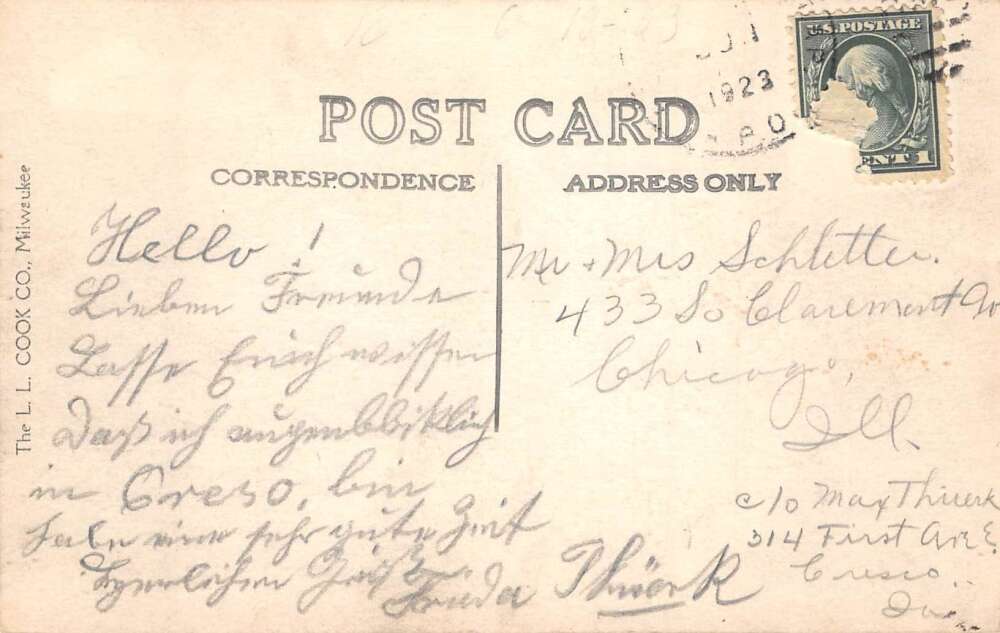 U.S. POSTAGE
1923
POST CARD
CORRESPONDENCE
ADDRESS ONLY
The L. L. COOK CO., Milwaukee
Hello!
Lieben Freunde
Lasse Euch wissen
Daß ich augenbliklich
in Creso, bin
habe eine sehr gute Zeit
Herzlichen Gruß
Frieda Thüerk
Mr + Mrs Schletter.
433 So Claremont Av
Chicago,
Ill.
c/o Max Thuerk
314 First Ave E
Cresco,